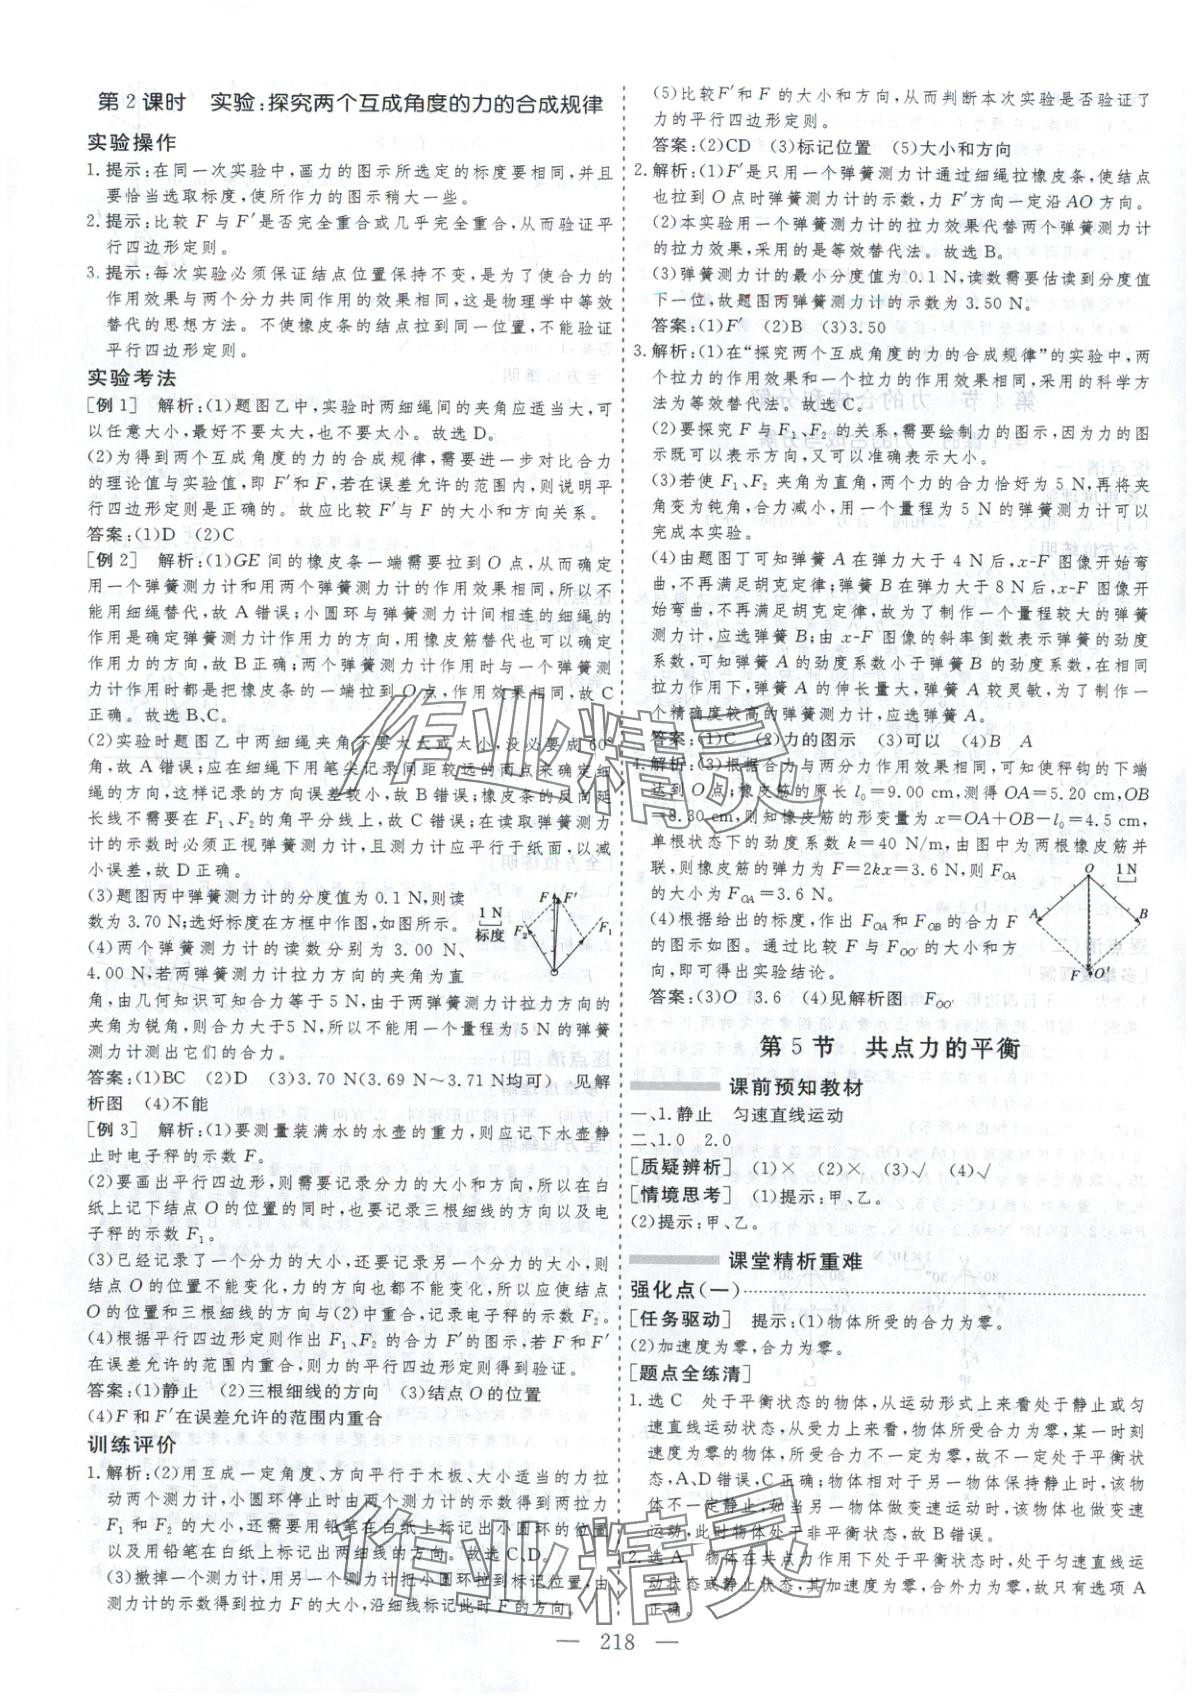 第2课时　实验：探究两个互成角度的力的合成规律
实验操作
1. 提示：在同一次实验中，画力的图示所选定的标度要相同，并且
要恰当选取标度，使所作力的图示稍大一些。
2. 提示：比较 F 与 F′是否完全重合或几乎完全重合，从而验证平
行四边形定则。
3. 提示：每次实验必须保证结点位置保持不变，是为了使合力的
作用效果与两个分力共同作用的效果相同，这是物理学中等效
替代的思想方法。不使橡皮条的结点拉到同一位置，不能验证
平行四边形定则。
实验考法
[例 1]　解析：(1)题图乙中，实验时两细绳间的夹角应适当大，可
以任意大小，最好不要太大，也不要太小。故选 D。
(2)为得到两个互成角度的力的合成规律，需要进一步对比合力
的理论值与实验值，即 F′和 F，若在误差允许的范围内，则说明平
行四边形定则是正确的。故应比较 F′与 F 的大小和方向关系。
答案：(1)D　(2)C
[例 2]　解析：(1)GE 间的橡皮条一端需要拉到 O 点，从而确定
用一个弹簧测力计和用两个弹簧测力计的作用效果相同，所以不
能用细绳替代，故 A 错误；小圆环与弹簧测力计间相连的细绳的
作用是确定弹簧测力计作用力的方向，用橡皮筋替代也可以确定
作用力的方向，故 B 正确；两个弹簧测力计作用时与一个弹簧测
力计作用时都是把橡皮条的一端拉到 O 点，作用效果相同，故 C
正确。故选 B、C。
(2)实验时题图乙中两细绳夹角不要太大或太小，没必要成 60°
角，故 A 错误；应在细绳下用笔尖记录间距较远的两点来确定细
绳的方向，这样记录的方向误差较小，故 B 错误；橡皮条的反向延
长线不需要在 F₁、F₂ 的角平分线上，故 C 错误；在读取弹簧测力
计的示数时必须正视弹簧测力计，且测力计应平行于纸面，以减
小误差，故 D 正确。
(3)题图丙中弹簧测力计的分度值为 0.1 N，则读
数为 3.70 N；选好标度在方框中作图，如图所示。
(4)两个弹簧测力计的读数分别为 3.00 N、
4.00 N，若两弹簧测力计拉力方向的夹角为直
角，由几何知识可知合力等于 5 N，由于两弹簧测力计拉力方向的
夹角为锐角，则合力大于5 N，所以不能用一个量程为 5 N 的弹簧
测力计测出它们的合力。
答案：(1)BC　(2)D　(3)3.70(3.69 N～3.71 N均可)　见解
析图　(4)不能
[例 3]　解析：(1)要测量装满水的水壶的重力，则应记下水壶静
止时电子秤的示数 F。
(2)要画出平行四边形，则需要记录分力的大小和方向，所以在白
纸上记下结点 O 的位置的同时，也要记录三根细线的方向以及电
子秤的示数 F₁。
(3)已经记录了一个分力的大小，还要记录另一个分力的大小，则
结点 O 的位置不能变化，力的方向也都不能变化，所以应使结点
O 的位置和三根细线的方向与(2)中重合，记录电子秤的示数 F₂。
(4)根据平行四边形定则作出 F₁、F₂ 的合力 F′的图示，若 F 和 F′
在误差允许的范围内重合，则力的平行四边形定则得到验证。
答案：(1)静止　(2)三根细线的方向　(3)结点 O 的位置
(4)F 和 F′在误差允许的范围内重合
训练评价
1. 解析：(2)用互成一定角度、方向平行于木板、大小适当的力拉
动两个测力计，小圆环停止时由两个测力计的示数得到两拉力
F₁ 和 F₂ 的大小，还需要用铅笔在白纸上标记出小圆环的位置
以及用铅笔在白纸上标记出两细线的方向。故选 C、D。
(3)撤掉一个测力计，用另一个测力计把小圆环拉到标记位置，由
测力计的示数得到拉力 F 的大小，沿细线标记此时 F 的方向。
F F′
1 N
标度
F₂ F₁
(5)比较 F′和 F 的大小和方向，从而判断本次实验是否验证了
力的平行四边形定则。
答案：(2)CD　(3)标记位置　(5)大小和方向
2. 解析：(1)F′是只用一个弹簧测力计通过细绳拉橡皮条，使结点
也拉到 O 点时弹簧测力计的示数，力 F′方向一定沿 AO 方向。
(2)本实验用一个弹簧测力计的拉力效果代替两个弹簧测力计
的拉力效果，采用的是等效替代法。故选 B。
(3)弹簧测力计的最小分度值为 0.1 N，读数需要估读到分度值
下一位，故题图丙弹簧测力计的示数为 3.50 N。
答案：(1)F′　(2)B　(3)3.50
3. 解析：(1)在“探究两个互成角度的力的合成规律”的实验中，两
个拉力的作用效果和一个拉力的作用效果相同，采用的科学方
法为等效替代法。故选 C。
(2)要探究 F 与 F₁、F₂ 的关系，需要绘制力的图示，因为力的图
示既可以表示方向，又可以准确表示大小。
(3)若使 F₁、F₂ 夹角为直角，两个力的合力恰好为 5 N，再将夹
角变为钝角，合力减小，用一个量程为 5 N 的弹簧测力计可以
完成本实验。
(4)由题图丁可知弹簧 A 在弹力大于 4 N 后，x-F 图像开始弯
曲，不再满足胡克定律；弹簧 B 在弹力大于 8 N 后，x-F 图像开
始弯曲，不再满足胡克定律，故为了制作一个量程较大的弹簧
测力计，应选弹簧 B；由 x-F 图像的斜率倒数表示弹簧的劲度
系数，可知弹簧 A 的劲度系数小于弹簧 B 的劲度系数，在相同
拉力作用下，弹簧 A 的伸长量大，弹簧 A 较灵敏，为了制作一
个精确度较高的弹簧测力计，应选弹簧 A。
答案：(1)C　(2)力的图示　(3)可以　(4)B　A
4. 解析：(3)根据合力与两分力作用效果相同，可知使秤钩的下端
达到 O 点；橡皮筋的原长 l₀＝9.00 cm，测得 OA＝5.20 cm，OB
＝8.30 cm，则知橡皮筋的形变量为 x＝OA＋OB－l₀＝4.5 cm，
单根状态下的劲度系数 k＝40 N/m，由图中为两根橡皮筋并
联，则橡皮筋的弹力为 F＝2kx＝3.6 N，则 F_OA
的大小为 F_OA＝3.6 N。
(4)根据给出的标度，作出 F_OA 和 F_OB 的合力 F
的图示如图。通过比较 F 与 F_OO′ 的大小和方
向，即可得出实验结论。
答案：(3)O　3.6　(4)见解析图　F_OO′
O 1 N
A B
F O′
第 5 节　共点力的平衡
课前预知教材
一、1. 静止　匀速直线运动
二、1. 0　2. 0
[质疑辨析]　(1)×　(2)×　(3)√　(4)√
[情境思考]　(1)提示：甲、乙。
(2)提示：甲、乙。
课堂精析重难
强化点(一)
[任务驱动]　提示：(1)物体所受的合力为零。
(2)加速度为零，合力为零。
[题点全练清]
1. 选 C　处于平衡状态的物体，从运动形式上来看处于静止或匀
速直线运动状态，从受力上来看，物体所受合力为零，某一时刻
速度为零的物体，所受合力不一定为零，故不一定处于平衡状
态，A、D 错误，C 正确；物体相对于另一物体保持静止时，该物体
不一定静止，如当另一物体做变速运动时，该物体也做变速
运动，此时物体处于非平衡状态，故 B 错误。
2. 选 A　物体在共点力作用下处于平衡状态时，处于匀速直线运
动状态或静止状态，其加速度为零，合外力为零，故只有选项 A
正确。
作业精灵
作业精灵
218